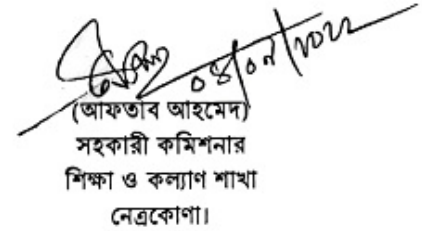 (আফতাব আহমেদ)
সহকারী কমিশনার
শিক্ষা ও কল্যাণ শাখা
নেত্রকোণা।